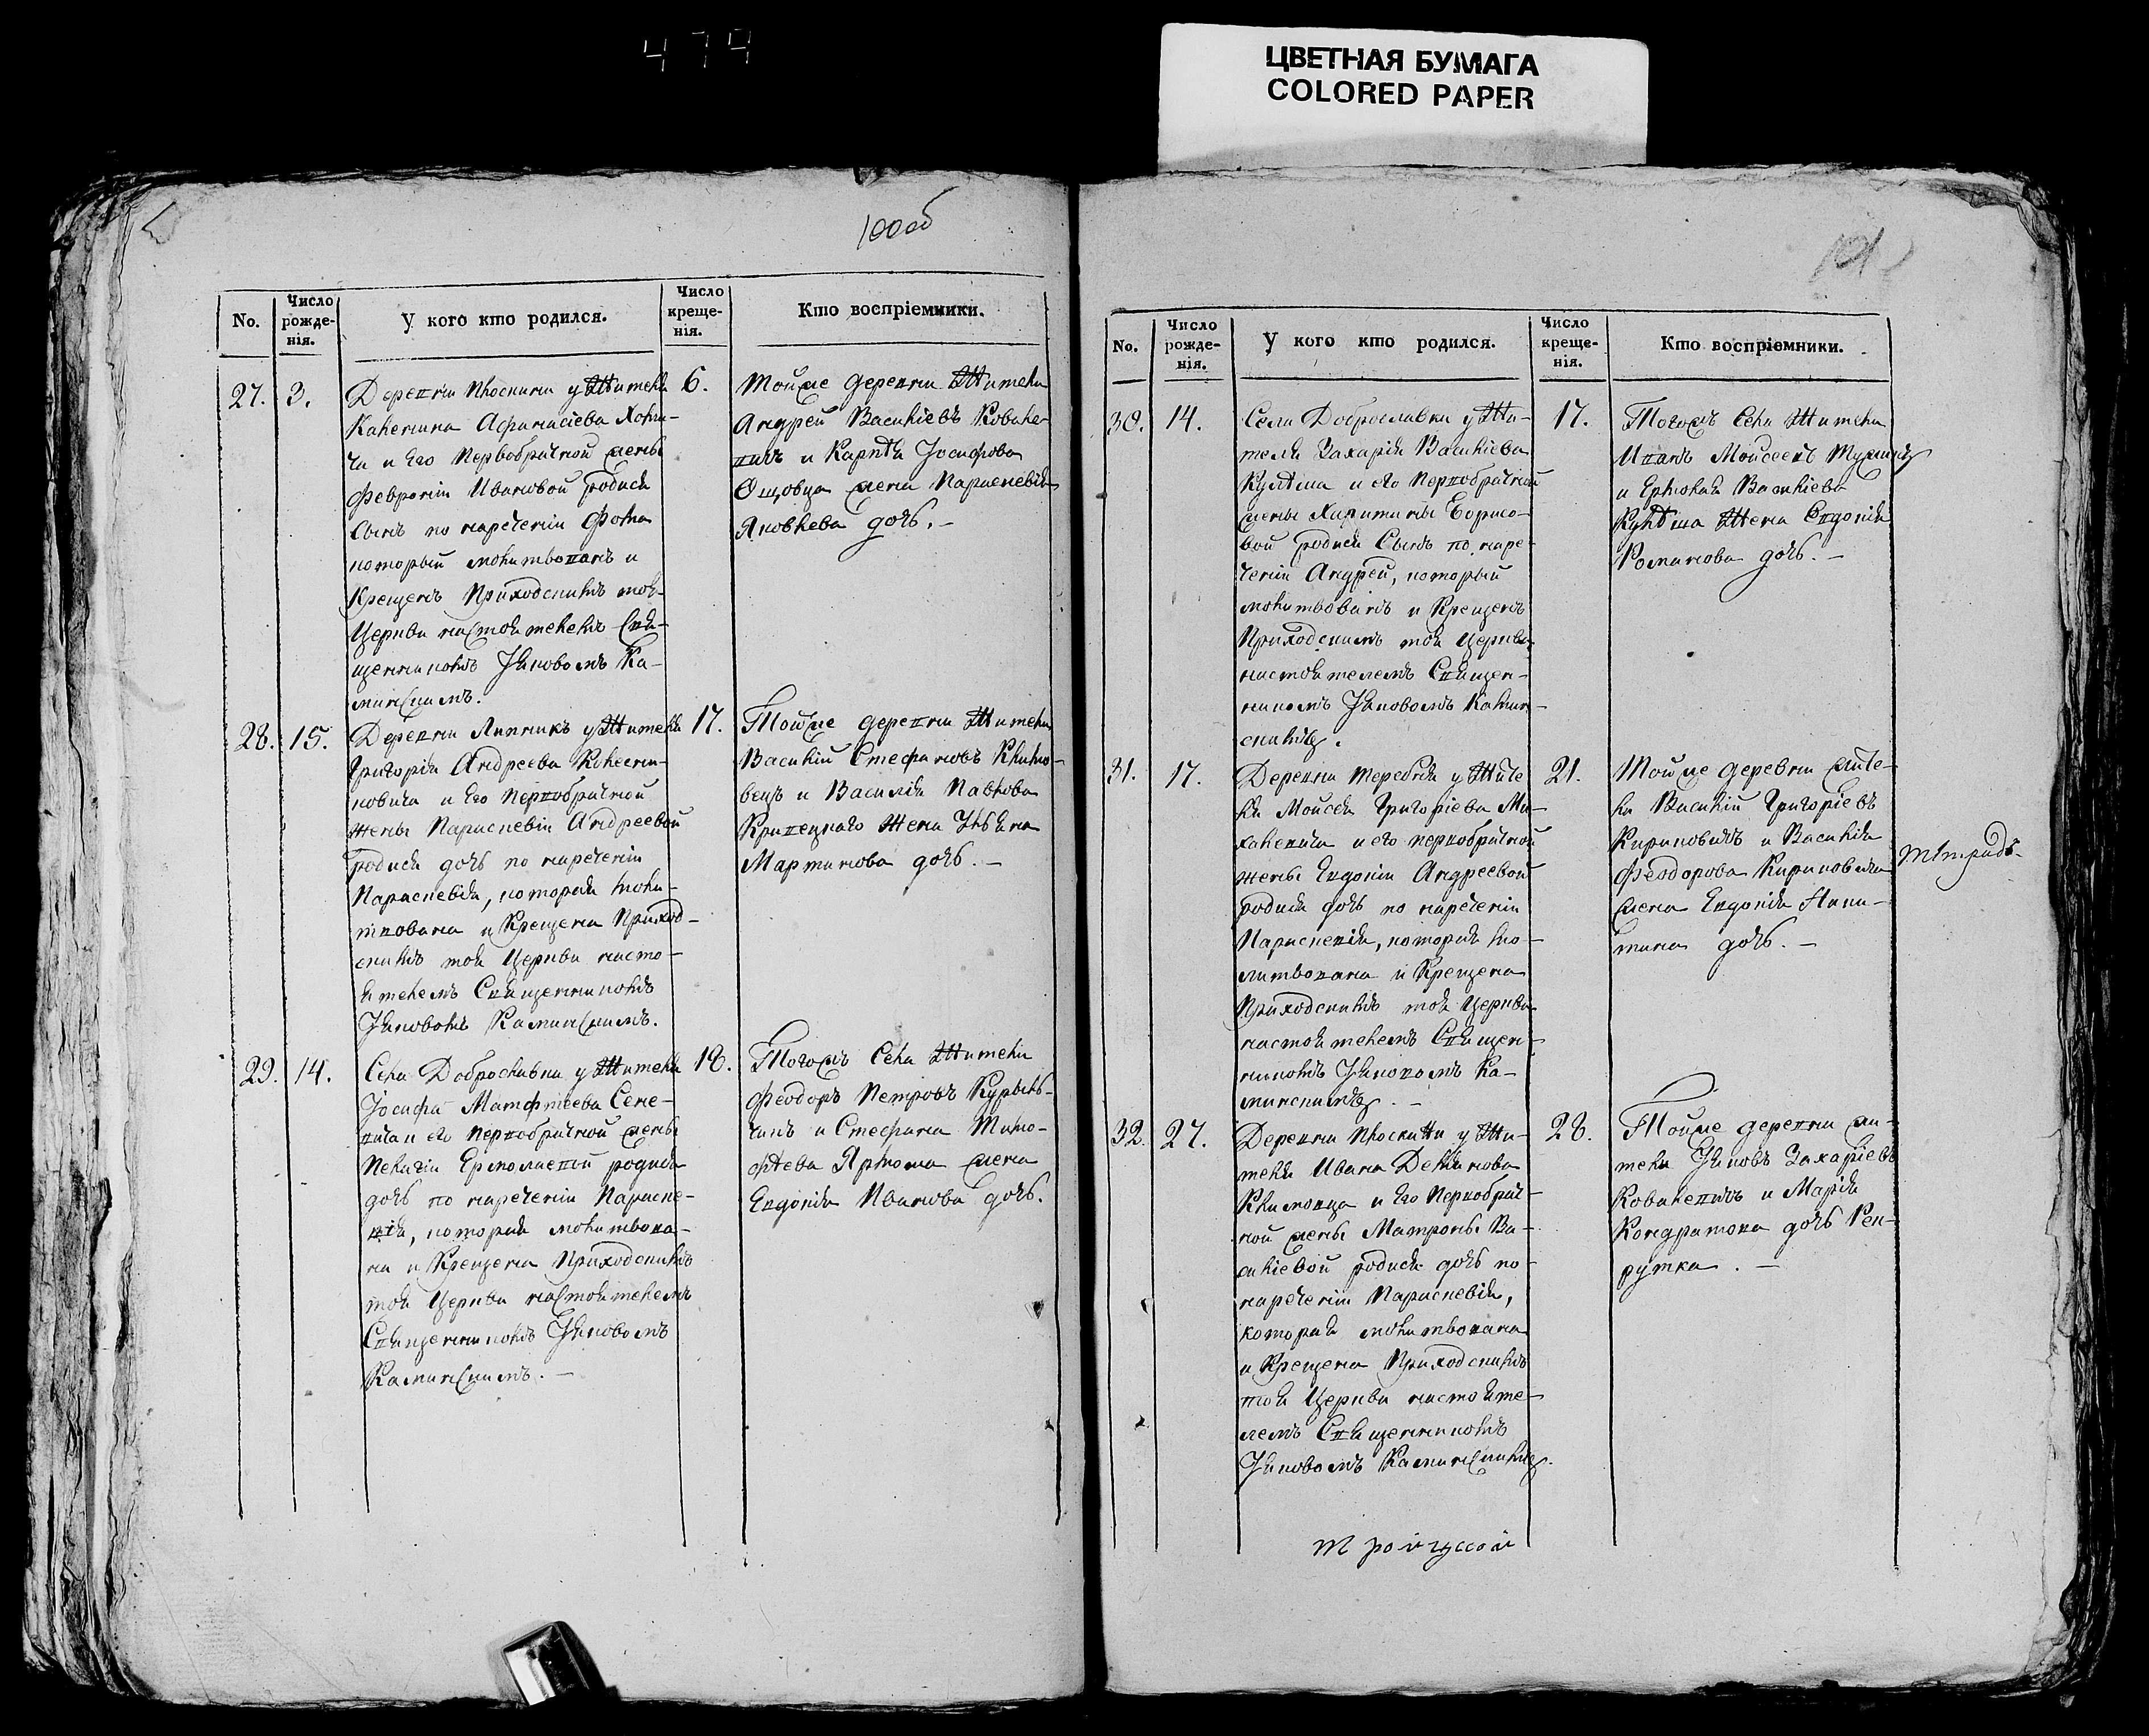 474
ЦВЕТНАЯ БУМАГА
COLORED PAPER
100об
No.
Число рожде-нія.
У кого кто родился.
Число креще-нія.
Кто воспріемники.
27.
3.
Деревни Плоскини у Жителя
Каленина Афанасіева Хоми-
ча и Его Первобрачной жены
Февроніи Ивановой родися
Сынъ по нареченіи Фома
который молитвованъ и
Крещенъ Приходскимъ тоя
Церкви настоятелемъ Свя-
щенникомъ Іяковомъ Ка-
минскимъ.
6.
Тойже деревни Жители
Андрей Василіевъ Ковале-
вичъ и Карпа Іосифова
Ощовца жена Параскевія
Яковлева дочь. –
28.
15.
Деревни Липникъ у Жителя
Григорія Андреева Колесни-
ковича и Его Первобрачной
жены Параскевіи Андреевой
родися дочь по нареченіи
Параскевія, которая моли-
твована и Крещена Приход-
скимъ тоя Церкви насто-
ятелемъ Священникомъ
Іяковомъ Каминскимъ.
17.
Тойже деревни Жители
Василій Стефановъ Климо-
вецъ и Василія Павлова
Кривецкаго жена Уліяна
Мартинова дочь. –
29.
14.
Села Доброславки у Жителя
Іосифа Матфтеева Сене-
вича и его Первобрачной жены
Пелагіи Ермолаевой родися
дочь по нареченіи Параске-
вія, которая молитвова-
на и Крещена Приходскимъ
тоя Церкви настоятелемъ
Священникомъ Іяковомъ
Каминскимъ. –
18.
Тогожъ Села Жители
Феодоръ Петровъ Курьянь-
чикъ и Стефана Тимо-
фтева Ярмоша жена
Евдокія Иванова дочь.
101
No.
Число рожде-нія.
У кого кто родился.
Число креще-нія.
Кто воспріемники.
30.
14.
Села Доброславки у Жи-
теля Захарія Василіева
Кулѣша и его Первобрачной
жены Харитины Борисо-
вой родися Сынъ по наре-
ченіи Андрей, который
молитвованъ и Крещенъ
Приходскимъ тоя Церкви
настоятелемъ Священ-
никомъ Іяковомъ Камин-
скимъ.
17.
Тогожъ Села Жители
Иванъ Моисеевъ
и Ермолая Василіева
Кулѣша Жена Евдокія
Романова дочь. –
31.
17.
Деревни Теребня у Жите
ля Моисея Григоріева Ми-
халевича и его первобрачной
жены Евдокіи Андреевой
родися дочь по нареченіи
Параскевія, которая мо-
литвована и Крещена
Приходскимъ тоя Церкви
настоятелемъ Священ-
никомъ Іяковомъ Ка-
минскимъ. –
21.
Тойже деревни жите-
ли Василій Григоріевъ
Кириковичъ и Василія
Феодорова Кириковича
жена Евдокія Ники-
тина дочь. –
32.
27.
Деревни Плоскини у Жи-
теля Ивана Деміянова
Климовца и Его Первобрач-
ной жены Матроны Ва-
силіевой родися дочь по
нареченіи Параскевія,
которая молитвована
и Крещена Приходскимъ
тоя Церкви настояте-
лемъ Священникомъ
Іяковомъ Каминскимъ.
28.
Тойже деревни жи-
тели Іяковъ Захаріевъ
Ковалевичъ и Марія
Кондратова дочь Рек-
рутка. –